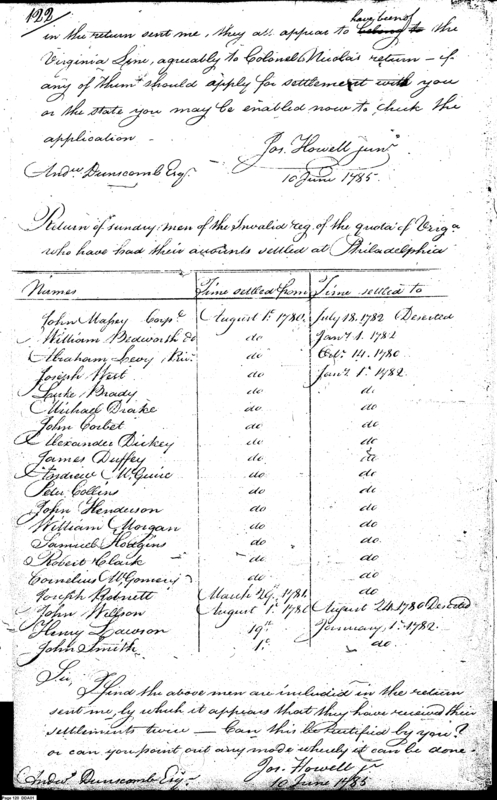 122
in the return sent me, they all appear to have been of the
Virginia Line, agreeably to Colonel Nicola's return — if
any of them should apply for settlement with you
or the state you may be enabled now to check the
application
Jos. Howell junr
Andw Dunscomb Esqr
10 June 1785.
Return of sundry men of the Invalid reg. of the quota of Virga
who have had their accounts settled at Philadelphia
Names Time settled from Time settled to
John Massey Corpl August 1st 1780. July 18. 1782 Deserted
William Bedworth do do Jany 1. 1782
Abraham Levy do Octr 14. 1780
Joseph West do Jany 1st 1782
Luke Brady do do
Michael Drake do do
John Corbet do do
Alexander Dickey do do
James Duffey do do
Andrew McGuire do do
Peter Collins do do
John Henderson do do
William Morgan do do
Samuel Hodgins do do
Robert Clark do do
Cornelius McGomery do do
Joseph Robnett March 29th 1781 do
John Willson August 1st 1780 August 24 1780 Deserted
Henry Lawson 19th January 1st 1782
John Smith 1st do
Sir,
I find the above men are included in the return
sent me, by which it appears that they have received their
settlements twice — Can this be rectified by you?
or can you point out any mode whereby it can be done.
Jos. Howell jr
Andw Dunscomb Esqr
10 June 1785